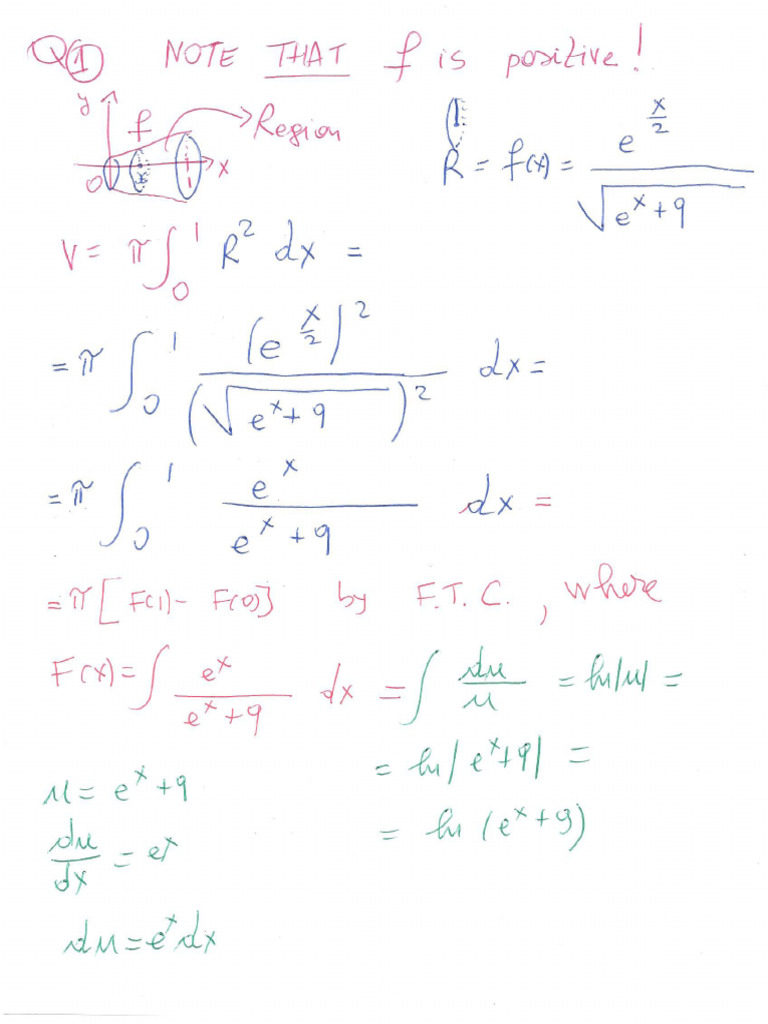 Q① NOTE THAT f is positive!
y f → Region
0 x 1 x
R = f(x) = e^(x/2) / √(e^x + 9)
V = π ∫₀¹ R² dx =
= π ∫₀¹ (e^(x/2))² / (√(e^x + 9))² dx =
= π ∫₀¹ e^x / (e^x + 9) dx =
= π [F(1) - F(0)] by F.T.C., where
F(x) = ∫ e^x / (e^x + 9) dx = ∫ du/u = ln|u| =
= ln|e^x + 9| =
= ln (e^x + 9)
u = e^x + 9
du/dx = e^x
du = e^x dx